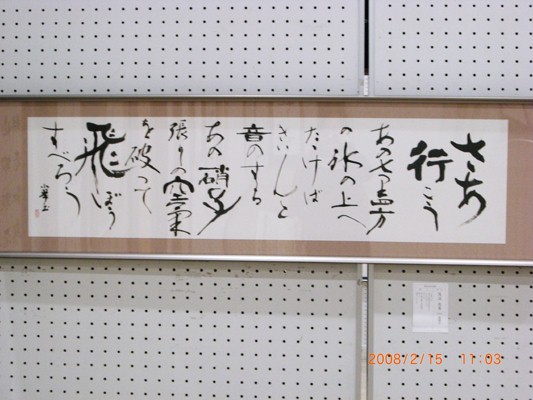 さあ
行こう
あの七里四方
の氷の上へ
たゝけば
きいんと
音のする
あの硝子
張りの空氣
を破って
飛ぼう
すべろう
2008/2/15 11:03